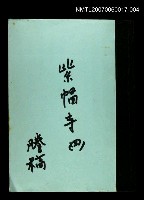 NMTL20070060017-004
紫幅寺(四)
謄稿